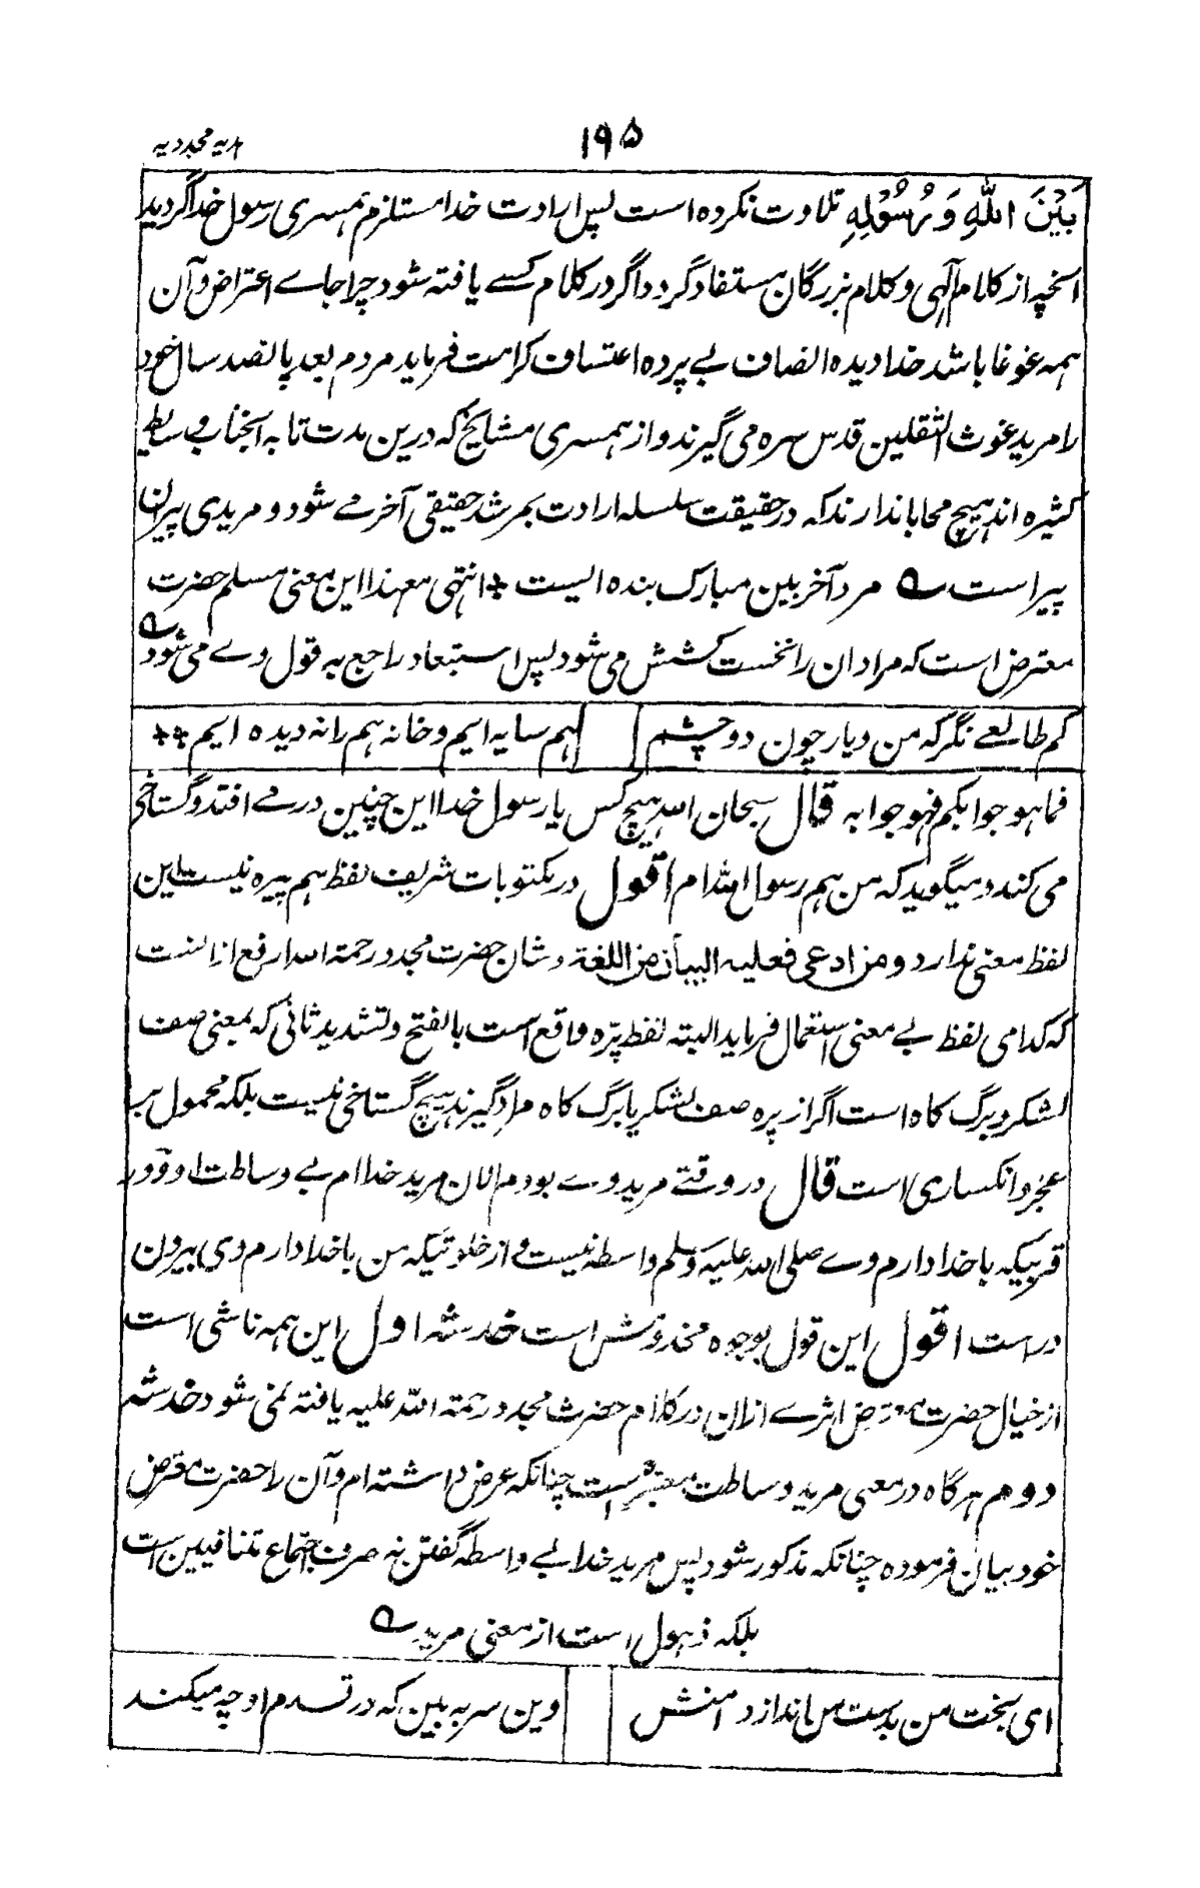 ۱۹۵
ـدیه مجددیه
بَیْنَ اللّٰهِ وَرُسُوْلِهِ تلاوت نکرده است پس ارادت خدا مستلزم همسری رسول خدا گردید
آنچه از کلام آلهی و کلام بزرگان مستفاد گردد اگر در کلام کسے یافته شود چرا جاے اعتراض و آن
همه غوغا باشد خدا دیده انصاف بے پرده اعتساف کرامت فرماید مردم بعد پانصد سال خود
را مرید غوث الثقلین قدس سره می گیرند و از همسری مشایخ که درین مدت تا به آنجناب وسایط
کثیره اند هیچ محابا ندارند که در حقیقت سلسله ارادت بمرشد حقیقی آخر مے شود و مریدی پیران
پیر است ؎ مرد آخر بین مبارک بنده الیست ٭ انتهی معهذا این معنی مسلم حضرت
معترض است که مرادان را نخست کشش می شود پس استبعاد راجع به قول وے می شود ؎
کم طالعے نگر که من و یار چون دو چشم | هم سایه ایم و خانه هم را نه دیده ایم ٭٭
فما هو جوابکم فهو جوابه قال سبحان الله هیچ کس یا رسول خدا این چنین در مے افتد و گستاخی
می کند و میگوید که من هم رسول الله ام اقول در مکتوبات شریف لفظ هم پیره نیست این
لفظ معنی ندارد و من ادعی فعلیه البیان من اللغة و شان حضرت مجدد رحمة الله ارفع ازانست
که کدامی لفظ بے معنی استعمال فرماید البته لفظ پرّه واقع است بالفتح و تشدید ثانی که بمعنی صف
لشکر و برگ کاه است اگر از پره صف لشکر یا برگ کاه مراد گیرند هیچ گستاخی نیست بلکه محمول بر
عجز و انکساری است قال در وقتے مرید وے بودم الان مرید خدا ام بے وساطت او و در
قربیکه با خدا دارم وے صلی الله علیه وسلم واسطه نیست و از خلوتیکه من با خدا دارم وی بیرون
در است اقول این قول بوجوه مخدوش است خدشه اول این همه ناشی است
از خیال حضرت معترض اثرے ازان در کلام حضرت مجدد رحمة الله علیه یافته نمی شود خدشه
دوم هرگاه در معنی مرید وساطت معتبر است چنانکه عرض داشته ام و آن را حضرت معترض
خود بیان فرموده چنانکه مذکور شود پس مرید خدا بے واسطه گفتن نه صرف اجتماع متنافیین است
بلکه ذهول است از معنی مرید ؎
ای بخت من بدست من انداز دامنش | وین سر به بین که در قدم او چه میکند